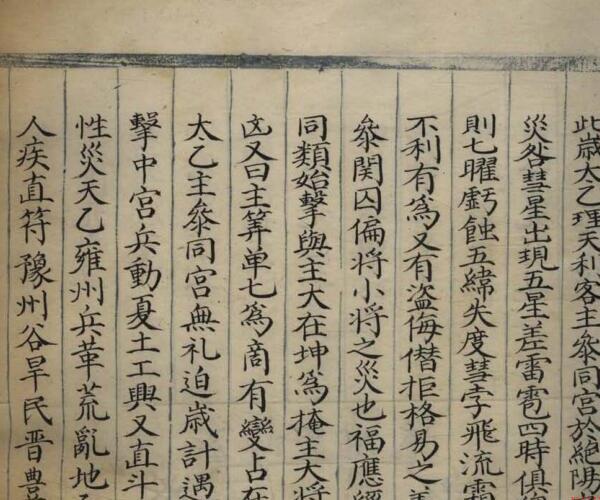 此歳太乙理天利客主叅同宮於絶陽
災咎彗星出現五星差雷雹四時俱
則七曜虧蝕五緯失度彗孛飛流
不利有為又有盜侮僣拒格易之
叅関囚偏將小將之災也福應
同類始擊與主大在坤為掩主大將
凶又曰主筭单七為啇有變占在
太乙主叅同宮無礼迫歳計遇
擊中宮兵動夏土工興又直斗
性災天乙雍州兵革荒亂地
人疾直符豫州谷旱民晋豊